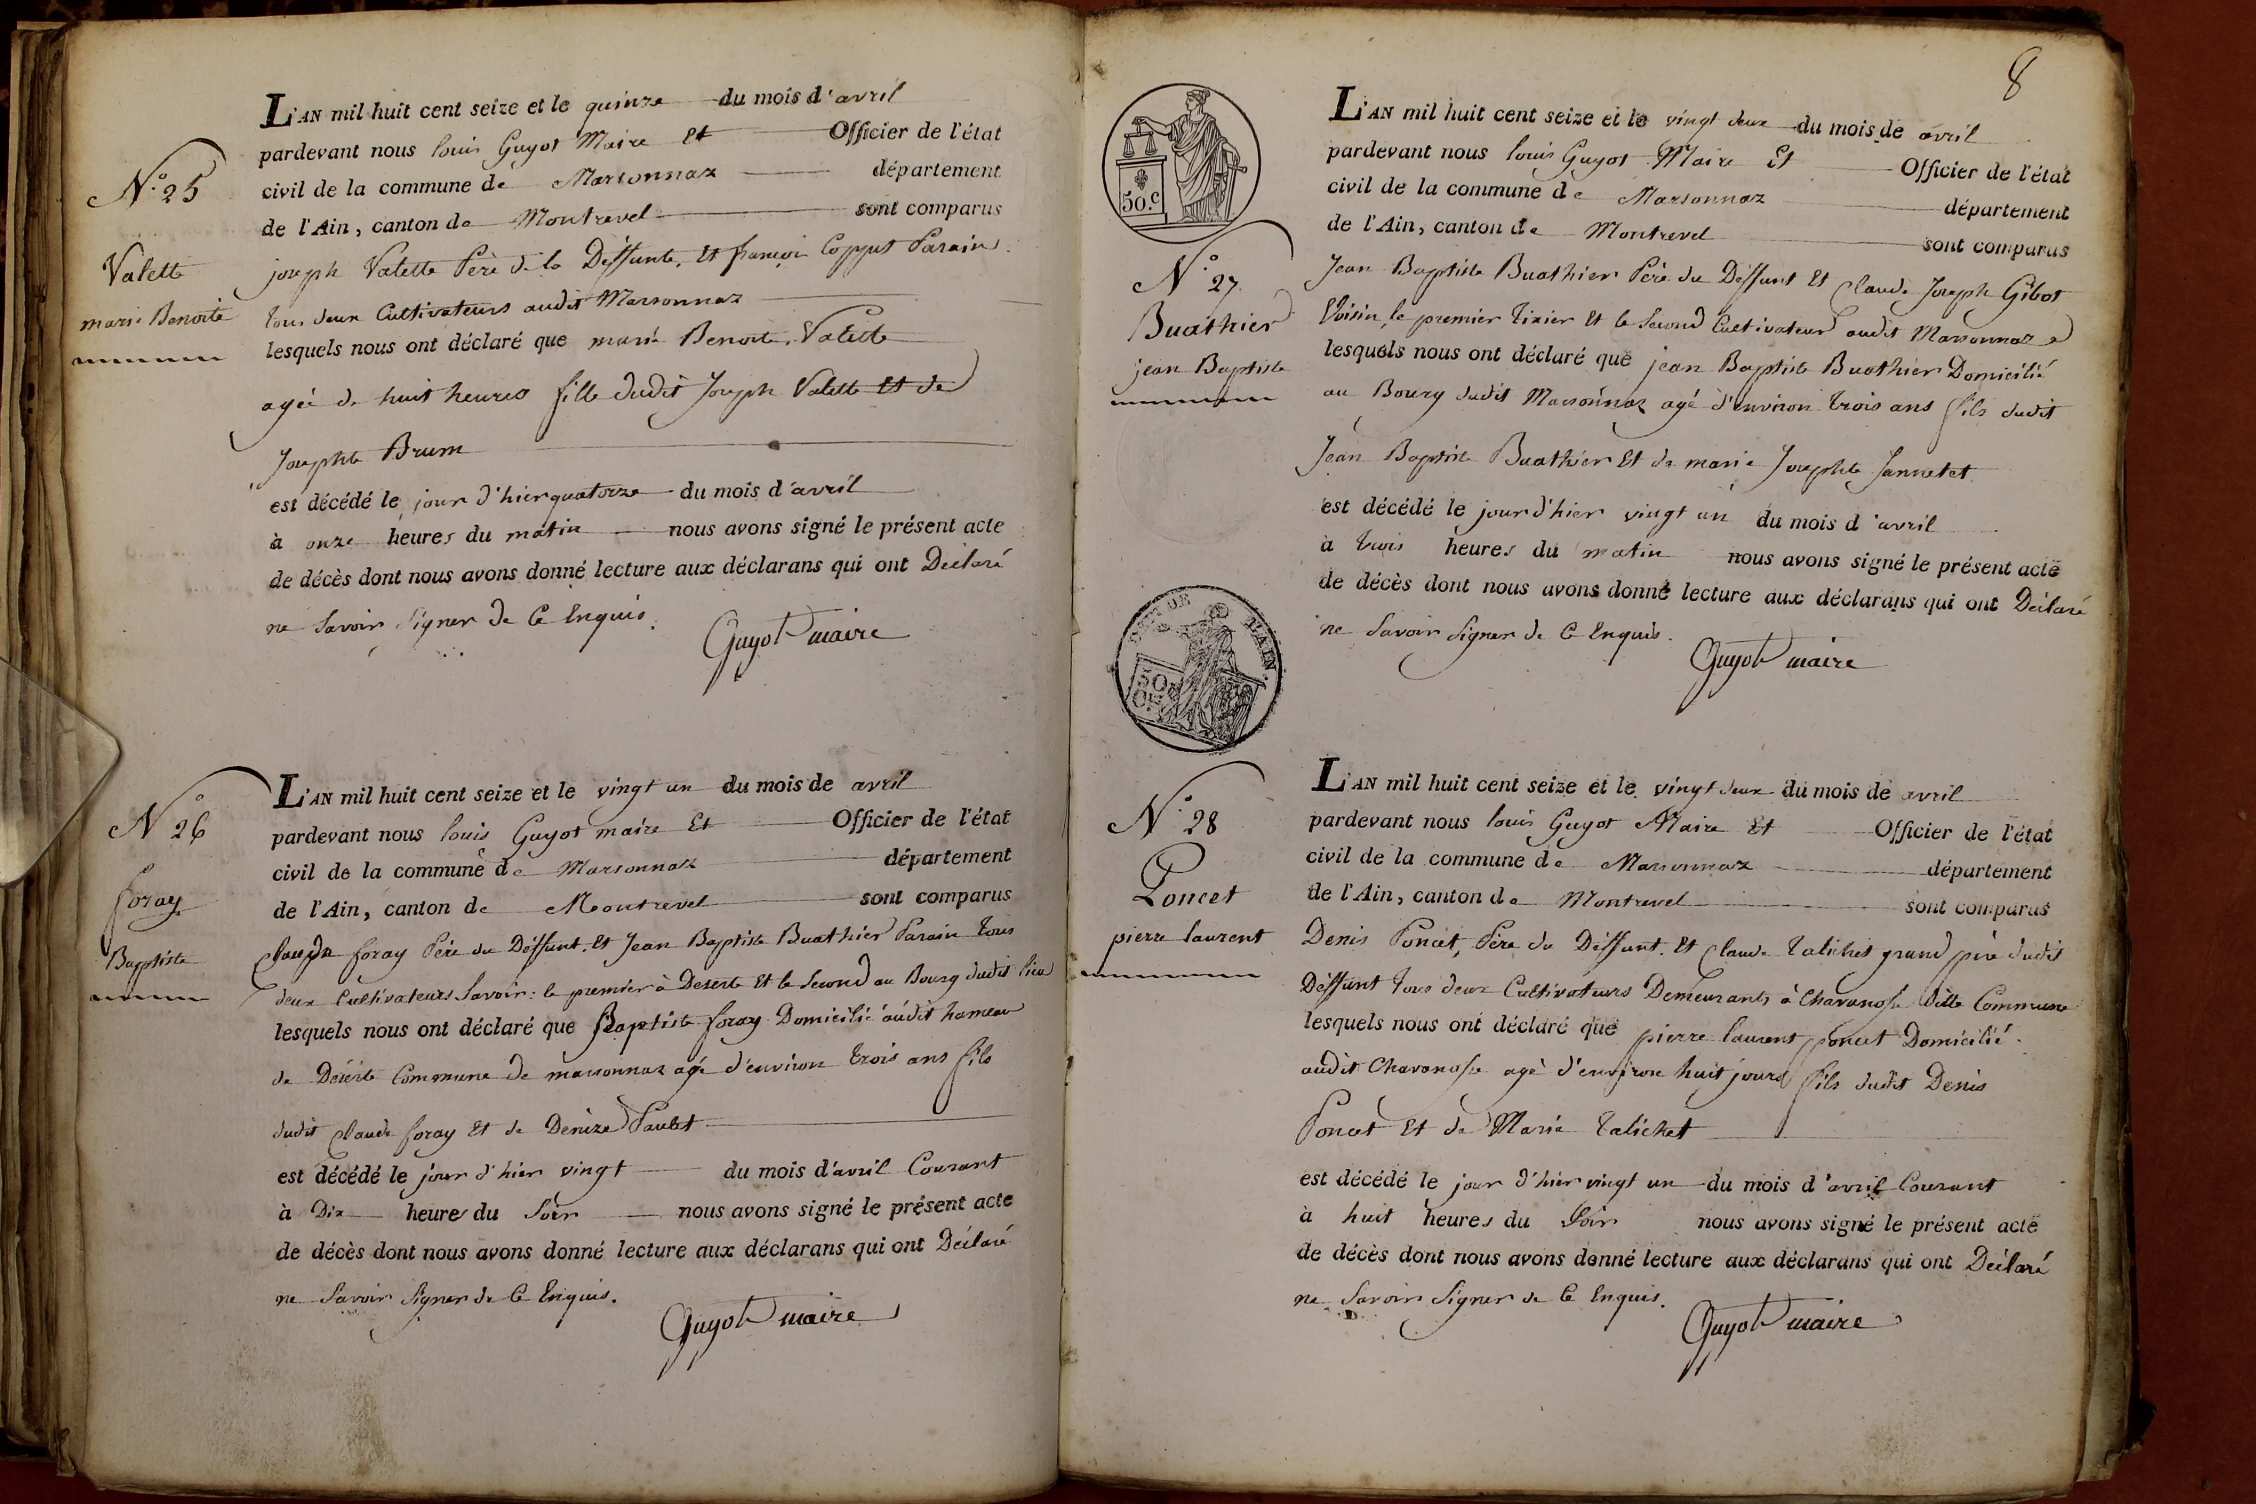 N.° 25
Valette
marie Benoite
L'AN mil huit cent seize et le quinze du mois d'avril
pardevant nous louis Guyot Maire Et Officier de l'état
civil de la commune de Marsonnaz département
de l'Ain, canton de Montrevel sont comparus
joseph Valette Père de la Déffunte, Et françois Coppet Parain
tous deux Cultivateurs audit Marsonnaz
lesquels nous ont déclaré que marie Benoite Valette
agée de huit heures fille dudit Joseph Valette Et de
Josephte Brum
est décédé le jour d'hier quatorze du mois d'avril
à onze heures du matin nous avons signé le présent acte
de décès dont nous avons donné lecture aux déclarans qui ont Déclaré
ne Savoir Signer de Ce Enquis.
Guyot maire
N° 26
foray
Baptiste
L'AN mil huit cent seize et le vingt un du mois de avril
pardevant nous louis Guyot maire Et Officier de l'état
civil de la commune de Marsonnaz département
de l'Ain, canton de Montrevel sont comparus
Claude foray Père du Déffunt. Et Jean Baptiste Buathier Parain tous
deux Cultivateurs Savoir: le premier à Deserte Et le Second au Bourg dudit lieu
lesquels nous ont déclaré que Baptiste foray Domicilié audit hameau
de Déserte Commune de marsonnaz agé d'environ trois ans fils
dudit Claude foray Et de Denize Paulet
est décédé le jour d'hier vingt du mois d'avril Courant
à Dix heures du Soir nous avons signé le présent acte
de décès dont nous avons donné lecture aux déclarans qui ont Déclaré
ne Savoir Signer de Ce Enquis.
Guyot maire
8
50.c
N.° 27.
Buathier
jean Baptiste
L'AN mil huit cent seize et le vingt deux du mois de avril
pardevant nous louis Guyot Maire Et Officier de l'état
civil de la commune de Marsonnaz département
de l'Ain, canton de Montrevel sont comparus
Jean Baptiste Buathier Père du Déffunt Et Claude Joseph Gibot
Voisin, le premier tixier Et le Second Cultivateur audit Marsonnaz
lesquels nous ont déclaré que jean Baptiste Buathier Domicilié
au Bourg dudit Marsonnaz agé d'environ trois ans fils dudit
Jean Baptiste Buathier Et de marie Josephte Jannetet
est décédé le jour d'hier vingt un du mois d'avril
à trois heures du matin nous avons signé le présent acte
de décès dont nous avons donné lecture aux déclarans qui ont Déclaré
ne Savoir Signer de Ce Enquis.
Guyot maire
50
N.° 28
Poncet
pierre laurent
L'AN mil huit cent seize et le vingt deux du mois de avril
pardevant nous louis Guyot Maire Et Officier de l'état
civil de la commune de Marsonnaz département
de l'Ain, canton de Montrevel sont comparus
Denis Poncet, Père du Déffunt. Et Claude talichet grand père dudit
Déffunt tous deux Cultivateurs Demeurants à Chavanosse ditte Commune
lesquels nous ont déclaré que pierre laurent poncet Domicilié
audit Chavanosse agé d'environ huit jours fils dudit Denis
Poncet Et de Marie talichet
est décédé le jour d'hier vingt un du mois d'avril Courant
à huit heures du Soir nous avons signé le présent acte
de décès dont nous avons donné lecture aux déclarans qui ont Déclaré
ne Savoir Signer de Ce Enquis.
Guyot maire